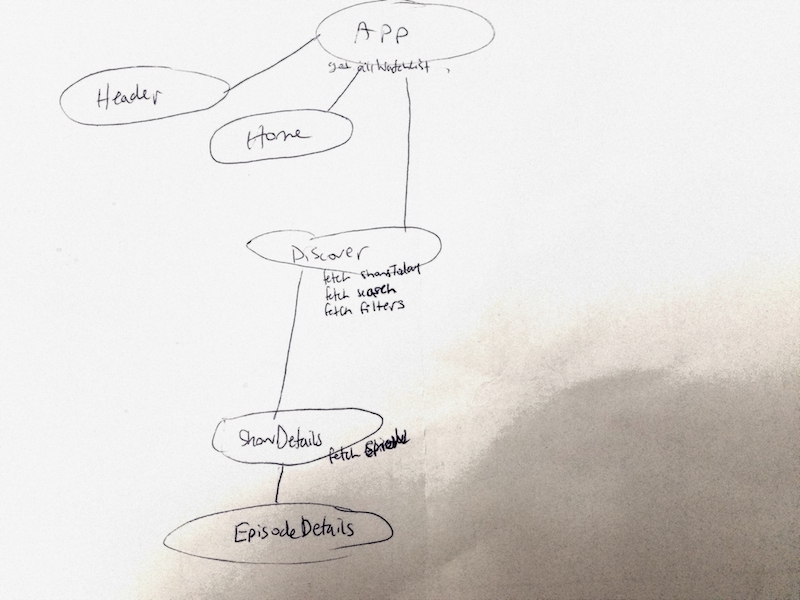 App
get allWatchList ,
Header
Home
Discover
fetch showsToday
fetch search
fetch filters
ShowDetails
fetch
EpisodeDetails